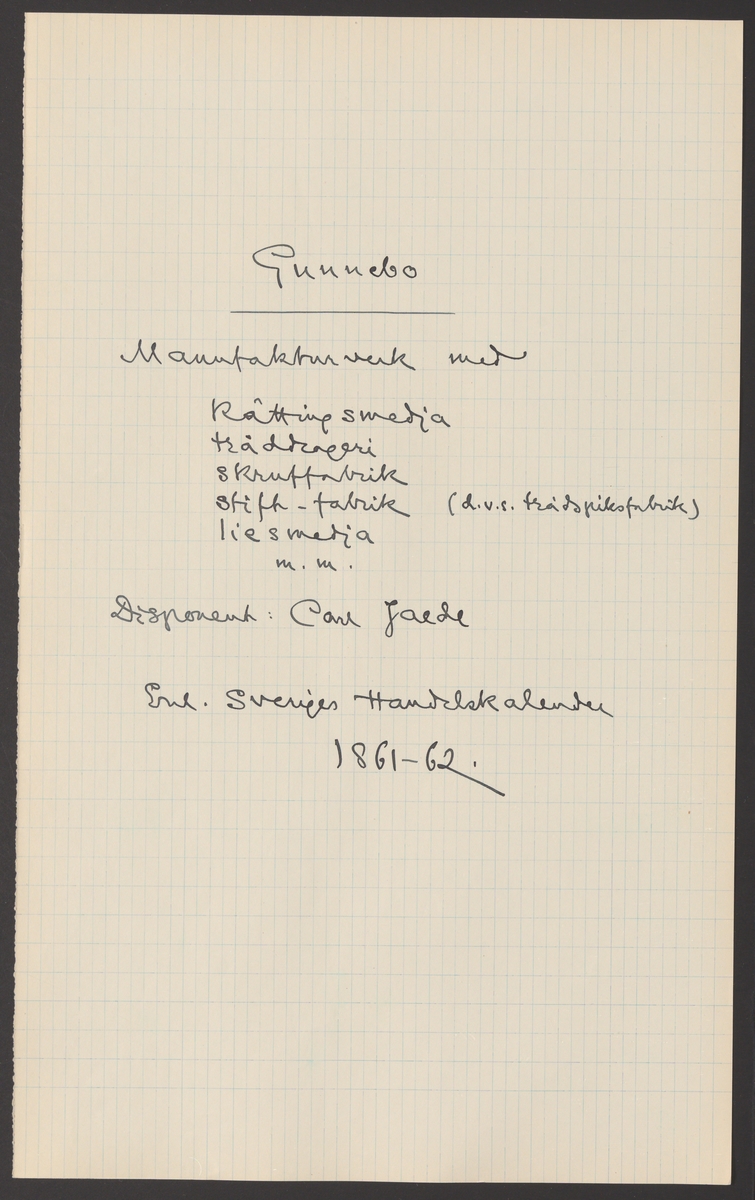 Gunnebo
Manufakturverk med
Kättingsmedja
tråddrageri
skruffabrik
stift-fabrik (d.v.s. trådspiksfabrik)
liesmedja
m.m.
Disponent: Carl Jaede
Enl. Sveriges Handelskalender
1861-62.